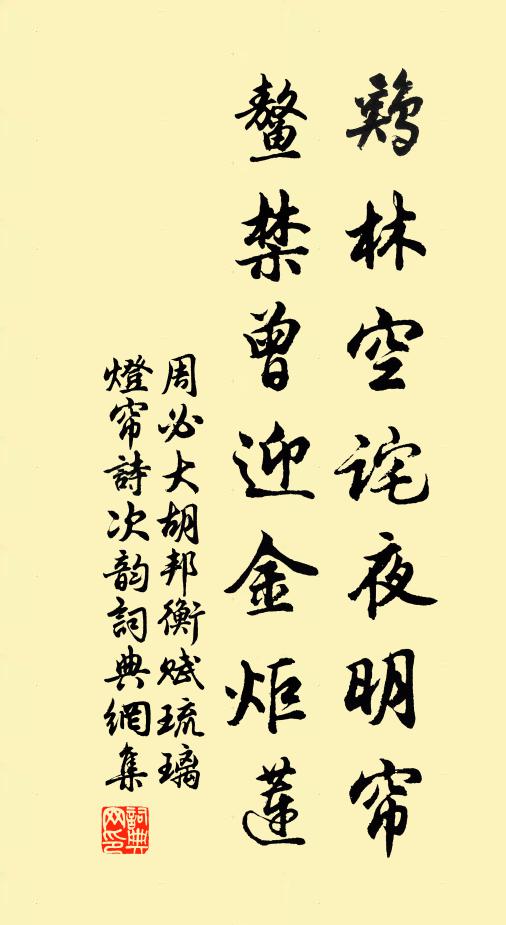 鷄林空詫夜明帘
鰲禁曾迎金炬蓮
周必大胡邦衡賦琉璃
燈帘詩次韵詞典網集
詞典网印